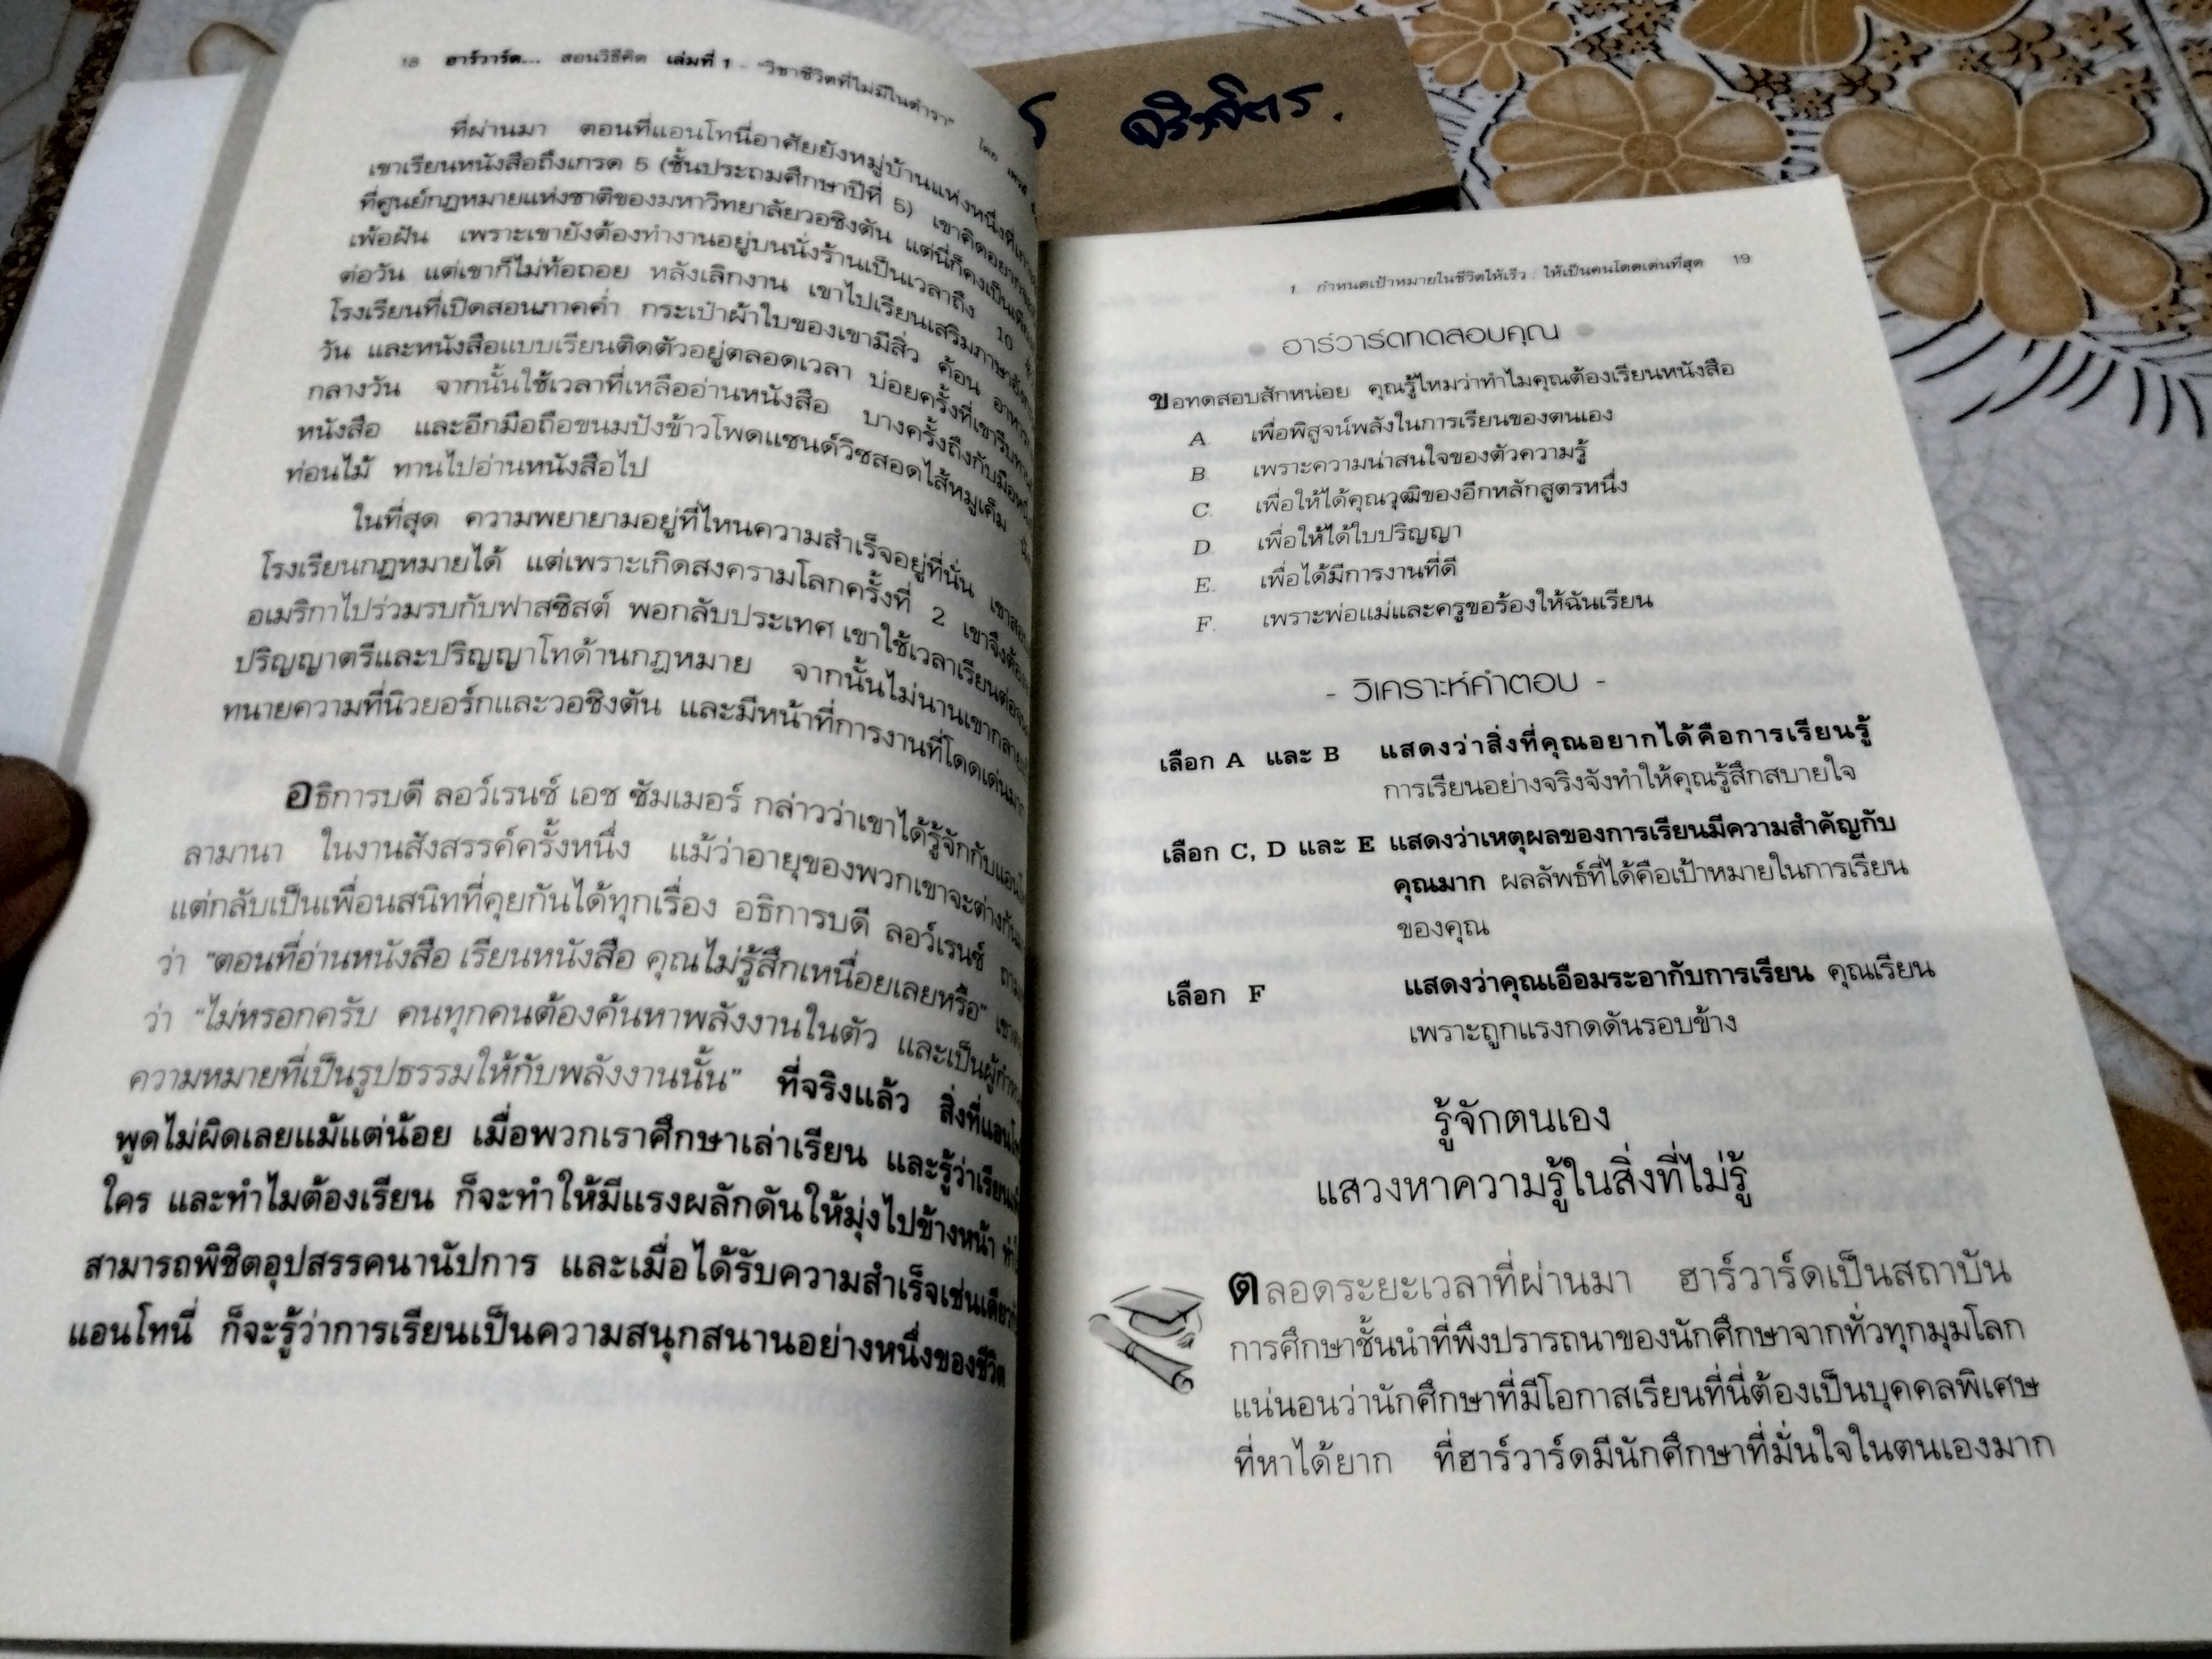 18 ฮาร์วาร์ด... สอนวิธีคิด เล่มที่ 1 - "วิชาชีวิตที่ไม่มีในตำรา" โดย
ที่ผ่านมา ตอนที่แอนโทนี่อาศัยยังหมู่บ้านแห่งหนึ่งที่
เขาเรียนหนังสือถึงเกรด 5 (ชั้นประถมศึกษาปีที่ 5) เขาคิดอยาก
ที่ศูนย์กฎหมายแห่งชาติของมหาวิทยาลัยวอชิงตัน แต่นี่ก็คงเป็น
เพ้อฝัน เพราะเขายังต้องทำงานอยู่บนนั่งร้านเป็นเวลาถึง 10
ต่อวัน แต่เขาก็ไม่ท้อถอย หลังเลิกงาน เขาไปเรียนเสริมภาษา
โรงเรียนที่เปิดสอนภาคค่ำ กระเป๋าผ้าใบของเขามีสิ่ว ค้อน
วัน และหนังสือแบบเรียนติดตัวอยู่ตลอดเวลา บ่อยครั้งที่เขารีบ
กลางวัน จากนั้นใช้เวลาที่เหลืออ่านหนังสือ บางครั้งถึงกับมือ
หนังสือ และอีกมือถือขนมปังข้าวโพดแซนด์วิชสอดไส้หมูเค็ม
ท่อนไม้ ทานไปอ่านหนังสือไป
ในที่สุด ความพยายามอยู่ที่ไหนความสำเร็จอยู่ที่นั่น
โรงเรียนกฎหมายได้ แต่เพราะเกิดสงครามโลกครั้งที่ 2 เขาจึง
อเมริกาไปร่วมรบกับฟาสซิสต์ พอกลับประเทศ เขาใช้เวลาเรียนต่อ
ปริญญาตรีและปริญญาโทด้านกฎหมาย จากนั้นไม่นานเขากลาย
ทนายความที่นิวยอร์กและวอชิงตัน และมีหน้าที่การงานที่โดดเด่นมาก
อธิการบดี ลอว์เรนซ์ เอช ซัมเมอร์ กล่าวว่าเขาได้รู้จักกับ
ลามานา ในงานสังสรรค์ครั้งหนึ่ง แม้ว่าอายุของพวกเขาจะต่างกัน
แต่กลับเป็นเพื่อนสนิทที่คุยกันได้ทุกเรื่อง อธิการบดี ลอว์เรนซ์
ว่า "ตอนที่อ่านหนังสือ เรียนหนังสือ คุณไม่รู้สึกเหนื่อยเลยหรือ"
ว่า "ไม่หรอกครับ คนทุกคนต้องค้นหาพลังงานในตัว และเป็น
ความหมายที่เป็นรูปธรรมให้กับพลังงานนั้น" ที่จริงแล้ว
พูดไม่ผิดเลยแม้แต่น้อย เมื่อพวกเราศึกษาเล่าเรียน และรู้ว่าเรียน
ใคร และทำไมต้องเรียน ก็จะทำให้มีแรงผลักดันให้มุ่งไปข้างหน้า
สามารถพิชิตอุปสรรคนานัปการ และเมื่อได้รับความสำเร็จเช่น
แอนโทนี่ ก็จะรู้ว่าการเรียนเป็นความสนุกสนานอย่างหนึ่งของชีวิต
จริงจิตร.
1 กำหนดเป้าหมายในชีวิตให้เร็ว : ให้เป็นคนโดดเด่นที่สุด 19
ฮาร์วาร์ดทดสอบคุณ
ขอทดสอบสักหน่อย คุณรู้ไหมว่าทำไมคุณต้องเรียนหนังสือ
A. เพื่อพิสูจน์พลังในการเรียนของตนเอง
B. เพราะความน่าสนใจของตัวความรู้
C. เพื่อให้ได้คุณวุฒิของอีกหลักสูตรหนึ่ง
D. เพื่อให้ได้ใบปริญญา
E. เพื่อได้มีการงานที่ดี
F. เพราะพ่อแม่และครูขอร้องให้ฉันเรียน
- วิเคราะห์คำตอบ -
เลือก A และ B แสดงว่าสิ่งที่คุณอยากได้คือการเรียนรู้
การเรียนอย่างจริงจังทำให้คุณรู้สึกสบายใจ
เลือก C, D และ E แสดงว่าเหตุผลของการเรียนมีความสำคัญกับ
คุณมาก ผลลัพธ์ที่ได้คือเป้าหมายในการเรียน
ของคุณ
เลือก F แสดงว่าคุณเอือมระอากับการเรียน คุณเรียน
เพราะถูกแรงกดดันรอบข้าง
รู้จักตนเอง
แสวงหาความรู้ในสิ่งที่ไม่รู้
ตลอดระยะเวลาที่ผ่านมา ฮาร์วาร์ดเป็นสถาบัน
การศึกษาชั้นนำที่พึงปรารถนาของนักศึกษาจากทั่วทุกมุมโลก
แน่นอนว่านักศึกษาที่มีโอกาสเรียนที่นี่ต้องเป็นบุคคลพิเศษ
ที่หาได้ยาก ที่ฮาร์วาร์ดมีนักศึกษาที่มั่นใจในตนเองมาก